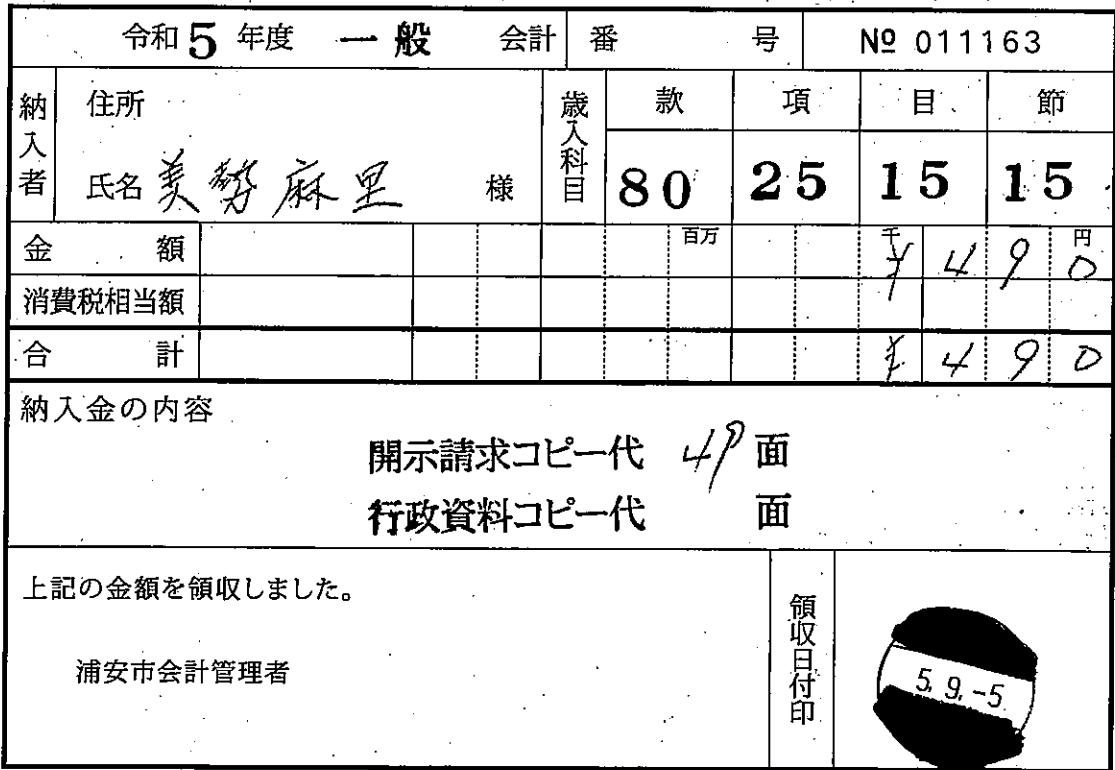 令和5年度 一般 会計 番 号 № 011163
納入者 住所
氏名 美勢麻里 様
歳入科目 款 項 目 節
80 25 15 15
金 額 百万 千 円 ¥490
消費税相当額
合 計 ¥490
納入金の内容
開示請求コピー代 49面
行政資料コピー代 面
上記の金額を領収しました。
浦安市会計管理者
領収日付印
5.9.-5